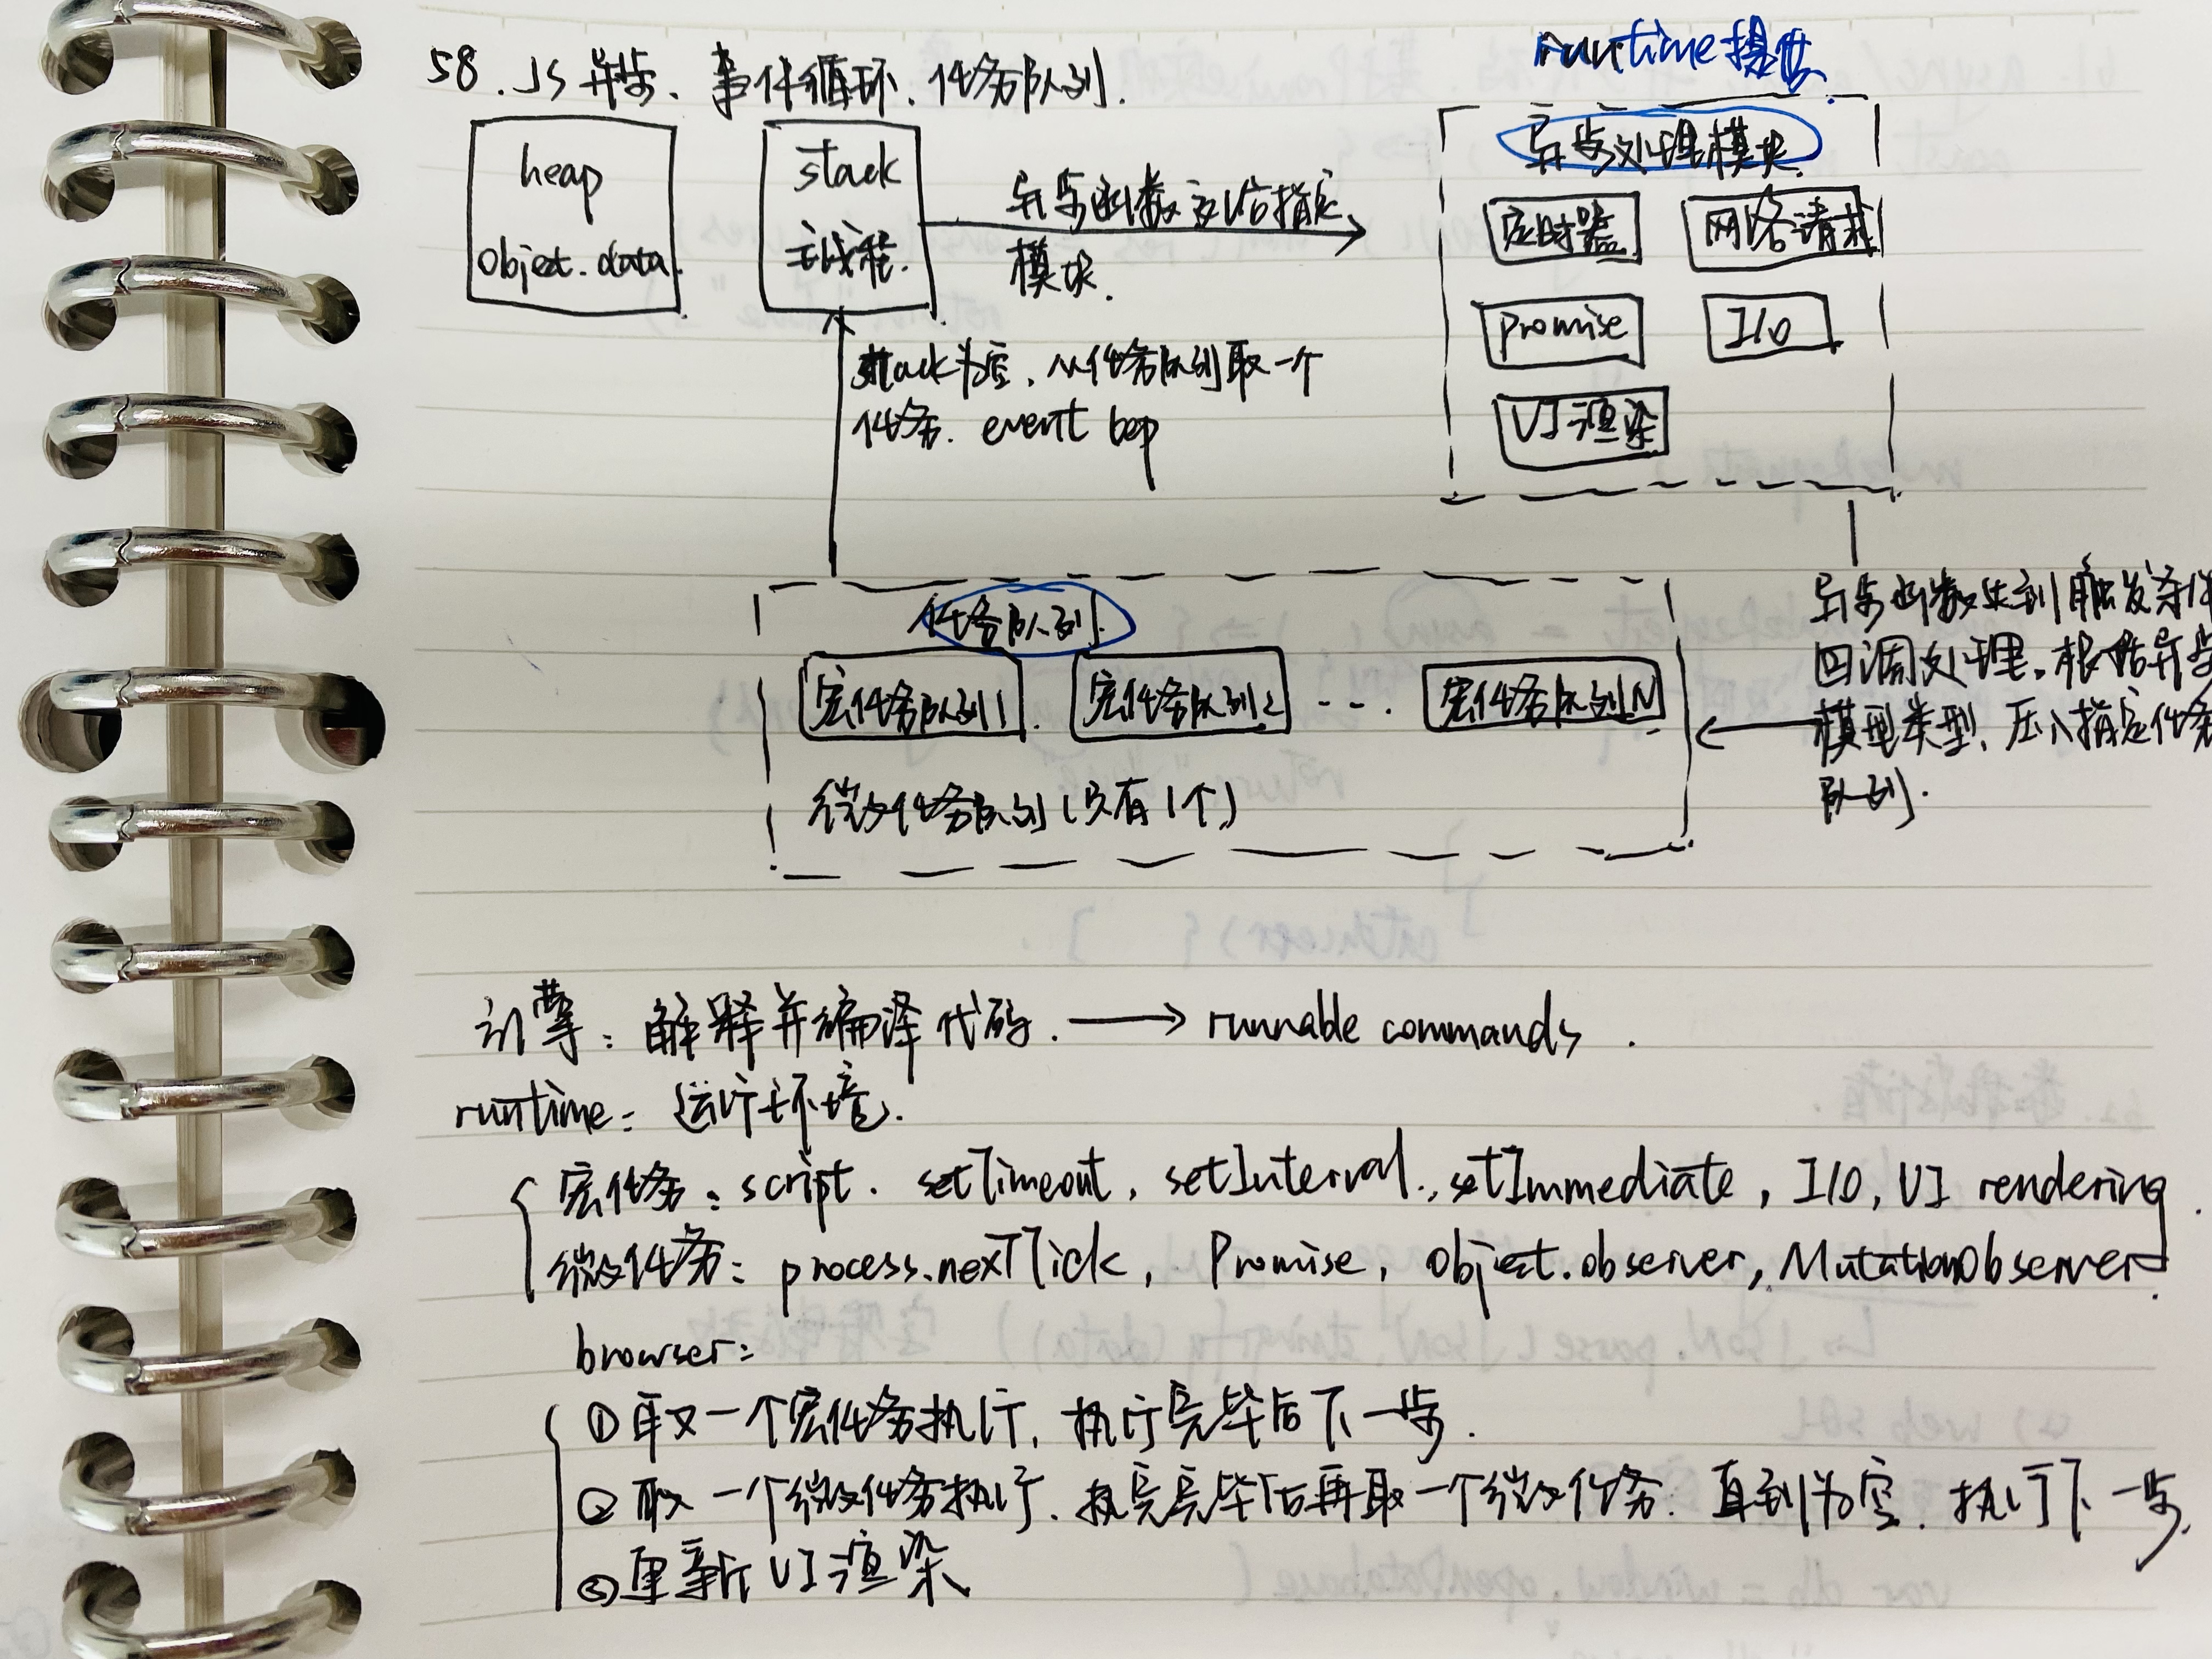 58. JS 异步、事件循环、任务队列.
runtime提供.
heap
object.data.
stack
主线程.
异步函数交给指定
模块.
异步处理模块.
定时器
网络请求
promise
I/O
UI渲染
stack为空、从任务队列取一个
任务. event loop
任务队列.
宏任务队列1.
宏任务队列2
...
宏任务队列N
微任务队列(只有1个)
异步函数达到触发条件
回调处理。根据异步
模型类型、压入指定任务
队列.
引擎: 解释并编译代码. → runnable commands.
runtime: 运行环境.
宏任务: script. setTimeout, setInterval, setImmediate, I/O, UI rendering.
微任务: process.nextTick, Promise, Object.observer, MutationObserver.
browser:
①取一个宏任务执行, 执行完毕后下一步.
②取一个微任务执行、执完毕后再取一个微任务. 直到为空. 执行下一步.
③更新UI渲染